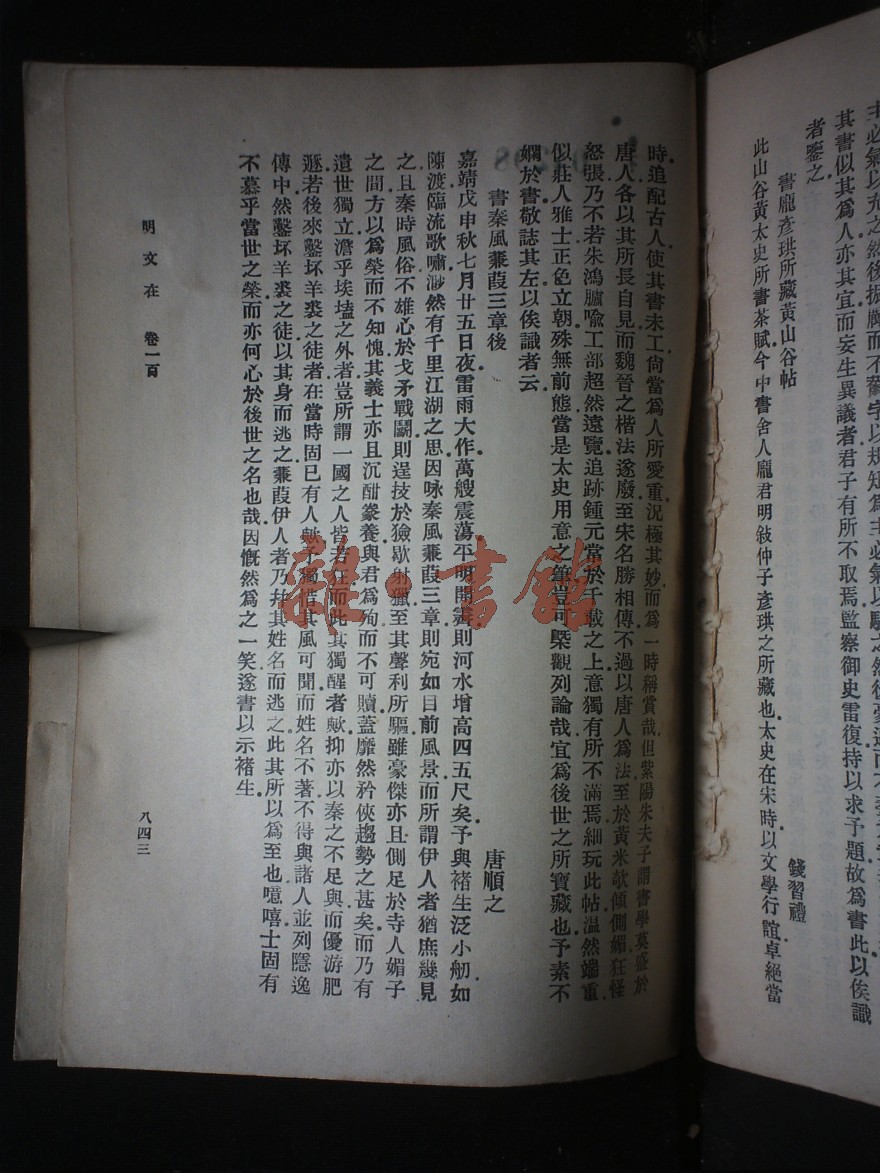 主必氣以充之然後振
其書似其爲人亦其宜而妄生異議者君子有所不取焉監察御史雷復持以求予題故爲書此以俟識
者鑒之
書龐彥珙所藏黃山谷帖
錢習禮
此山谷黃太史所書茶賦今中書舍人龐君明敍仲子彥珙之所藏也太史在宋時以文學行誼卓絕當
時追配古人使其書未工尙當爲人所愛重況極其妙而爲一時稱賞哉但紫陽朱夫子謂書學莫盛於
唐人各以其所長自見而魏晉之楷法遂廢至宋名勝相傳不過以唐人爲法至於黃米欹傾側媚狂怪
怒張乃不若朱鴻臚喩工部超然遠覽追跡鍾元常於千載之上意獨有所不滿焉細玩此帖溫然端重
似莊人雅士正色立朝殊無前態當是太史用意之筆豈可槩觀列論哉宜爲後世之所寶藏也予素不
嫻於書敬誌其左以俟識者云
書秦風蒹葭三章後
唐順之
嘉靖戊申秋七月廿五日夜雷雨大作萬艘震蕩平明開霽則河水增高四五尺矣予與褚生泛小舠如
陳渡臨流歌嘯渺然有千里江湖之思因咏秦風蒹葭三章則宛如目前風景而所謂伊人者猶庶幾見
之且秦時風俗不雄心於戈矛戰鬭則逞技於獫歇射獵至其聲利所驅雖豪傑亦且側足於寺人媚子
之間方以爲榮而不知愧其義士亦且沉酣豢養與君爲殉而不可贖蓋靡然矜俠趨勢之甚矣而乃有
遺世獨立澹乎埃壒之外者豈所謂一國之人皆若狂而此其獨醒者歟抑亦以秦之不足與而優游肥
遯若後來鑿坏羊裘之徒者在當時固已有人歟予獨惜其風可聞而姓名不著不得與諸人並列隱逸
傳中然鑿坏羊裘之徒以其身而逃之蒹葭伊人者乃幷其姓名而逃之此其所以爲至也噫嘻士固有
不慕乎當世之榮而亦何心於後世之名也哉因慨然爲之一笑遂書以示褚生
明文在 卷一百
八四三